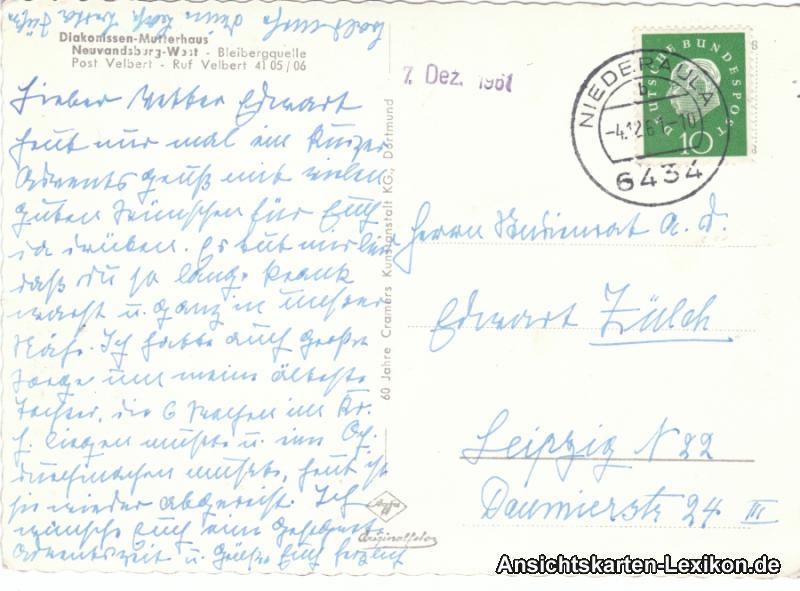 Diakonissen-Mutterhaus
Neuvandsburg-West - Bleibergquelle
Post Velbert - Ruf Velbert 41 05/06
Lieber Vetter Edwart
heut nur mal ein kurzer
Adventsgruß mit vielen
guten Wünschen für Euch
da drüben. Es tut mir leid
daß Du so lange krank
warst u. ganz in unserer
Nähe. Ich hatte auch große
Sorge um meine älteste
Tochter, die 6 Wochen im Kr.
H. liegen mußte u. im
durchmachen mußte, heut ist
sie wieder abgereist. Ich
wünsche Euch eine gesegnete
Adventszeit u. grüße Euch herzlich
60 Jahre Cramers Kunstanstalt KG., Dortmund
Agfa
Originalfoto
7. Dez. 1961
NIEDERAULA
b
-4.12.61-10
6434
DEUTSCHE BUNDESPOST
10
Herrn Studienrat a. D.
Edwart Zülch
Leipzig N 22
Daumierstr. 24 III
Ansichtskarten-Lexikon.de